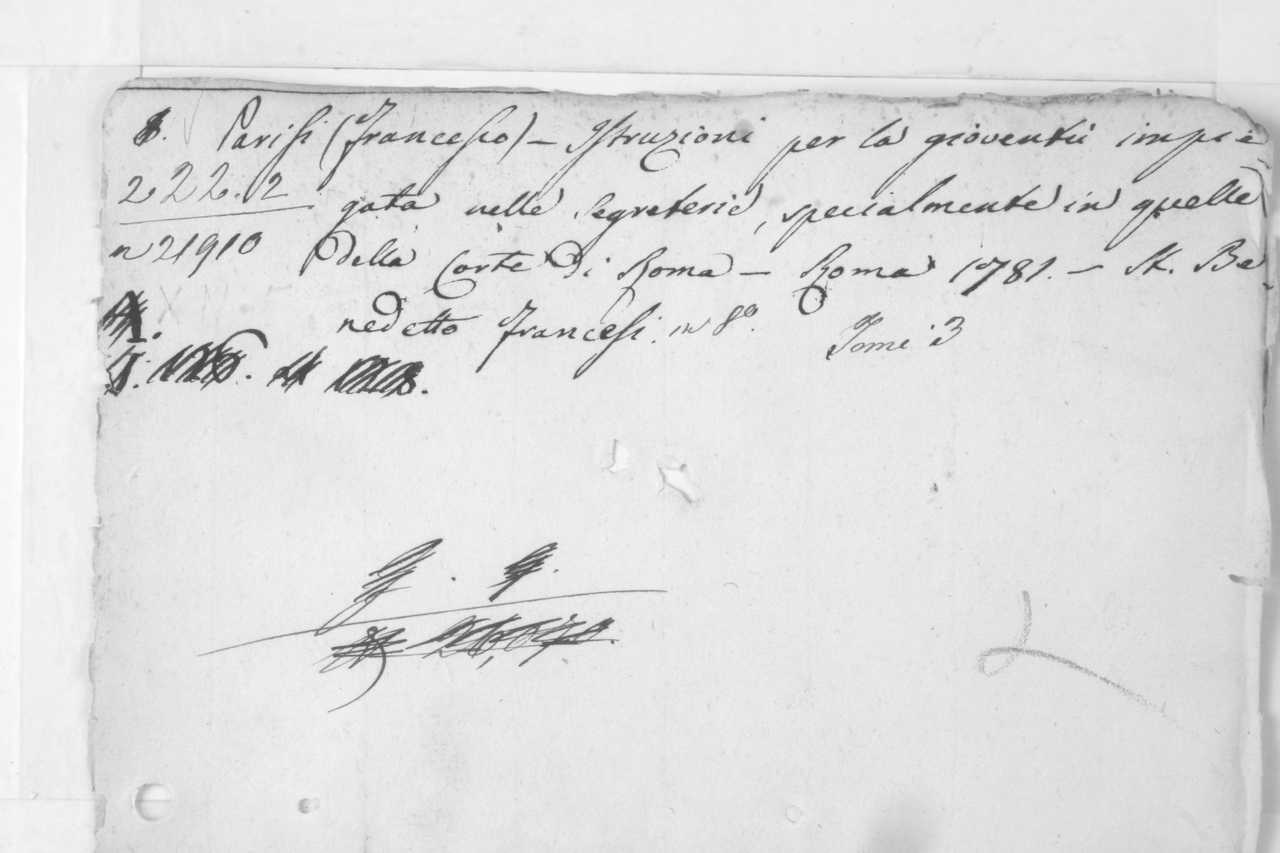 Parisi (Francesco) – Istruzioni per la gioventù impie
222.2 gata nelle Segreterie, specialmente in quelle
n 21910 della Corte di Roma – Roma 1781. – St. Be
nedetto Francesi. in 8º. Tomi 3